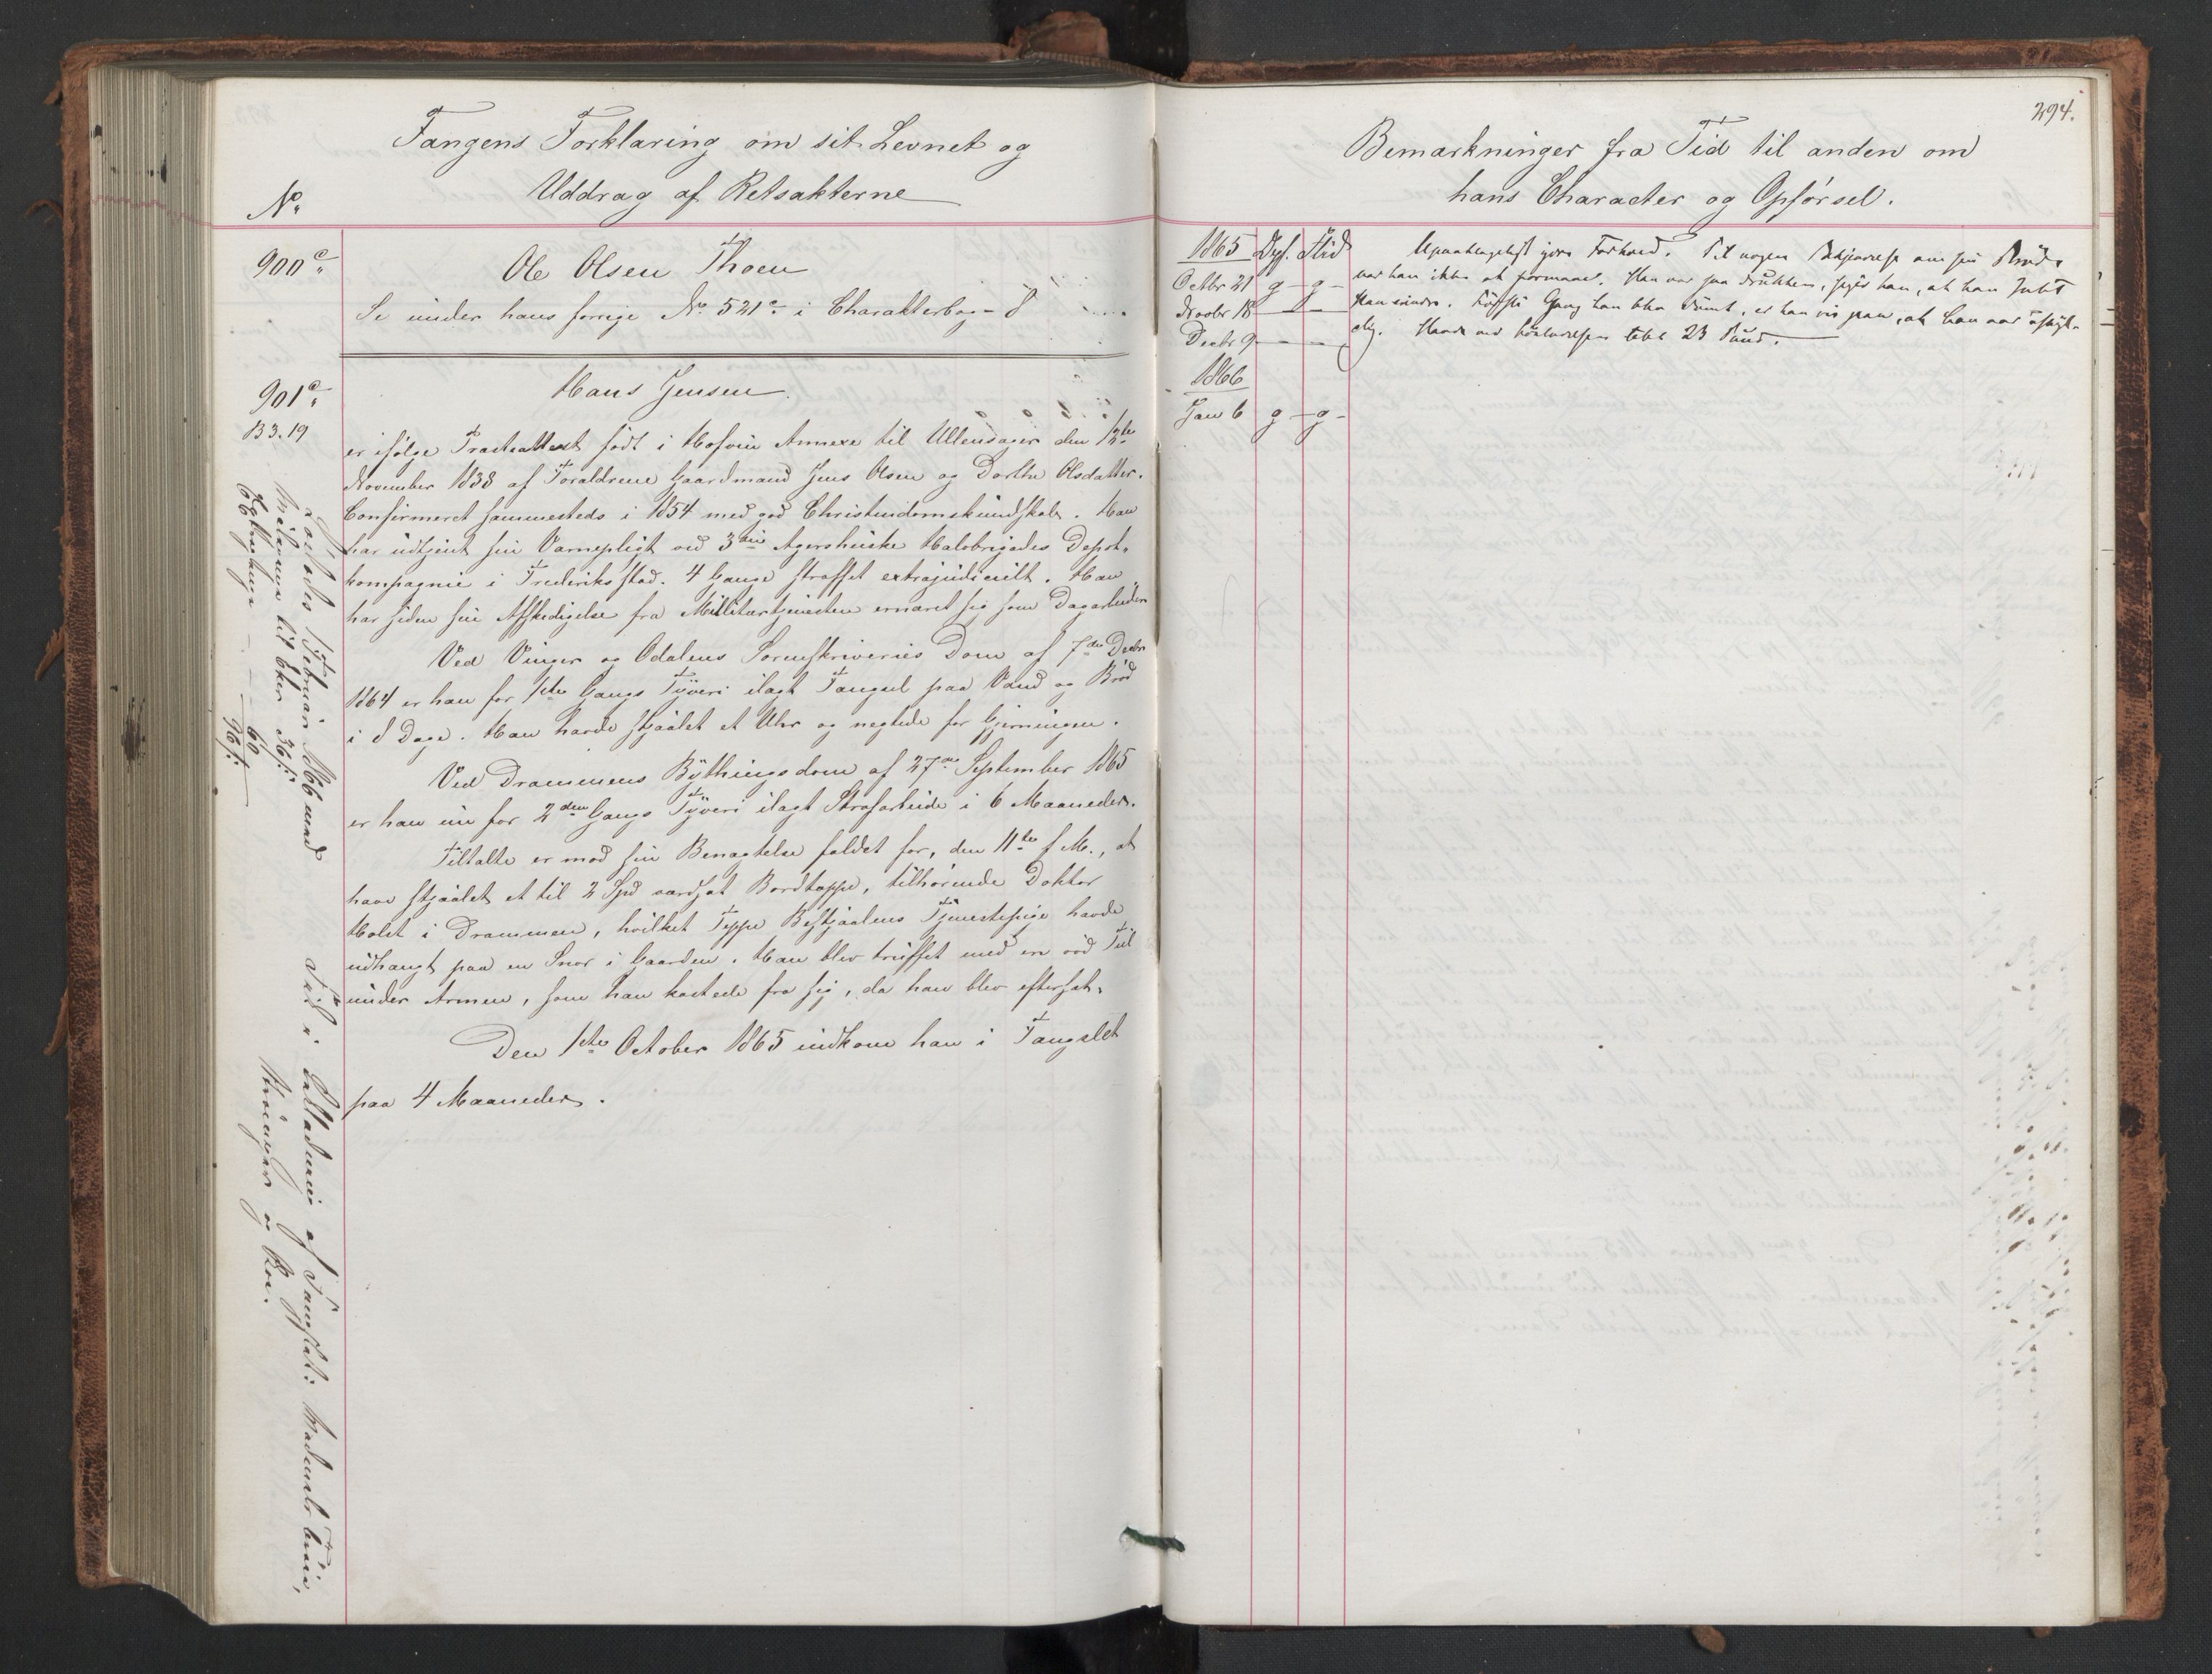 Fangens Forklaring om sit Levnet og
Uddrag af Retsakterne
No.
900c.
Ole Olsen Thoen
Se under hans forrige No. 521c. i Charakterbog - 8
901c.
B3.19
Hans Jensen.
er ifølge Præsteattest født i Hofvin Annexe til Ullensager den 12te
November 1838 af Forældrene Gaardmand Jens Olsen og Dorthe Olsdatter.
Confirmeret sammesteds i 1854 med god Christendomskundskab. Han
har udtjent sin Værnepligt ved 3die Agershuske Halvbrigades Depot-
kompagnie i Frederiksstad. 4 Gange straffet extrajudicielt. Han
har siden sin Afskedigelse fra Militærtjenesten ernæret sig som Dagarbeider
Ved Vinger og Odalens Sorenskriveries Dom af 7de Decbr
1864 er han for 1ste Gangs Tyveri ilagt Fængsel paa Vand og Brød
i 8 Dage. Han havde stjaalet et Uhr og negtede for Gjerningen.
Ved Drammens Bythingsdom af 27de September 1865
er han nu for 2den Gangs Tyveri ilagt Strafarbeide i 6 Maaneder.
Tiltalte er mod sin Benægtelse fældet for, den 11te f. M., at
have stjaalet et til 2 Spd værdsat Bordtæppe, tilhørende Doktor
Holst i Drammen, hvilket Teppe Bestjaalens Tjenestepige havde
udhængt paa en Snor i Gaarden. Han blev truffet med en
under Armen, som han kastede fra sig, da han blev eftersat.
Den 1ste October 1865 indkom han i Fængslet
paa 4 Maaneder.
Løslades 1 Februar 1866 med
til Eker 36 s:
60
96 s:
af Fængslet: Vadmels Trøie,
og Skoe.
294.
Bemærkninger fra Tid til anden om
hans Character og Opførsel.
1865 Opf. Flid
Octbr 21 g - g -
Novbr 18 - -
Decbr 9 - -
1866
Jan 6 g - g -
Upaaklageligt Forhold. Til nogen om sin Brøde
var han ikke at formaae. Han var saa drukken, siger han, at han Intet
Første Gang han blev dømt, er han vis paa, at han var uskyl-
dig. Havde ved Løsladelsen tabt 23 Pund.